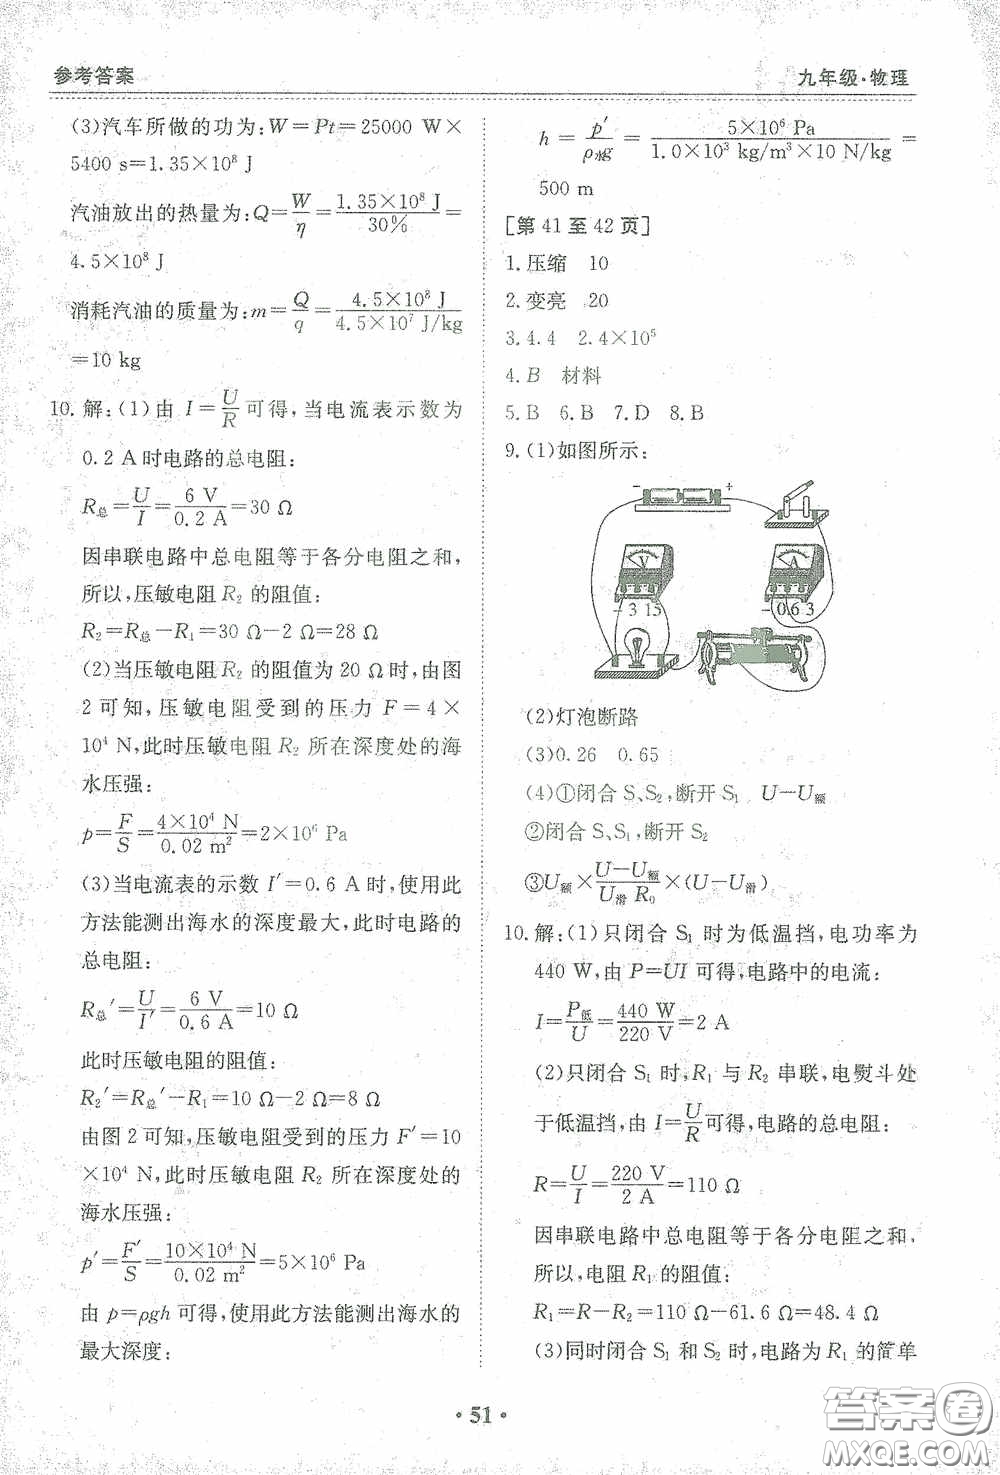 参考答案
九年级·物理
(3)汽车所做的功为:W=Pt=25000 W×
5400 s=1.35×10⁸ J
汽油放出的热量为:Q=W/η=1.35×10⁸ J/30%=
4.5×10⁸ J
消耗汽油的质量为:m=Q/q=4.5×10⁸ J/4.5×10⁷ J/kg
=10 kg
10. 解:(1)由 I=U/R可得,当电流表示数为
0.2 A时电路的总电阻:
R总=U/I=6 V/0.2 A=30 Ω
因串联电路中总电阻等于各分电阻之和,
所以,压敏电阻R₂的阻值:
R₂=R总-R₁=30 Ω-2 Ω=28 Ω
(2)当压敏电阻R₂的阻值为20 Ω时,由图
2可知,压敏电阻受到的压力 F=4×
10⁴ N,此时压敏电阻R₂所在深度处的海
水压强:
p=F/S=4×10⁴ N/0.02 m²=2×10⁶ Pa
(3)当电流表的示数I′=0.6 A时,使用此
方法能测出海水的深度最大,此时电路的
总电阻:
R总′=U/I′=6 V/0.6 A=10 Ω
此时压敏电阻的阻值:
R₂′=R总′-R₁=10 Ω-2 Ω=8 Ω
由图2可知,压敏电阻受到的压力F′=10
×10⁴ N,此时压敏电阻R₂所在深度处的
海水压强:
p′=F′/S=10×10⁴ N/0.02 m²=5×10⁶ Pa
由p=ρgh可得,使用此方法能测出海水的
最大深度:
h=p′/ρ水g=5×10⁶ Pa/1.0×10³ kg/m³×10 N/kg=
500 m
[第41至42页]
1.压缩 10
2.变亮 20
3.4.4 2.4×10⁵
4.B 材料
5.B 6.B 7.D 8.B
9.(1)如图所示:
- +
V
A
- 3 15
-0.6 3
(2)灯泡断路
(3)0.26 0.65
(4)①闭合S、S₂,断开S₁ U-U额
②闭合S、S₁,断开S₂
③U额×U-U额/U滑 R₀×(U-U滑)
10.解:(1)只闭合S₁时为低温挡,电功率为
440 W,由P=UI可得,电路中的电流:
I=P低/U=440 W/220 V=2 A
(2)只闭合S₁时,R₁与R₂串联,电熨斗处
于低温挡,由I=U/R可得,电路的总电阻:
R=U/I=220 V/2 A=110 Ω
因串联电路中总电阻等于各分电阻之和,
所以,电阻R₁的阻值:
R₁=R-R₂=110 Ω-61.6 Ω=48.4 Ω
(3)同时闭合S₁和S₂时,电路为R₁的简单
·51·
答案圈
MXQE.COM